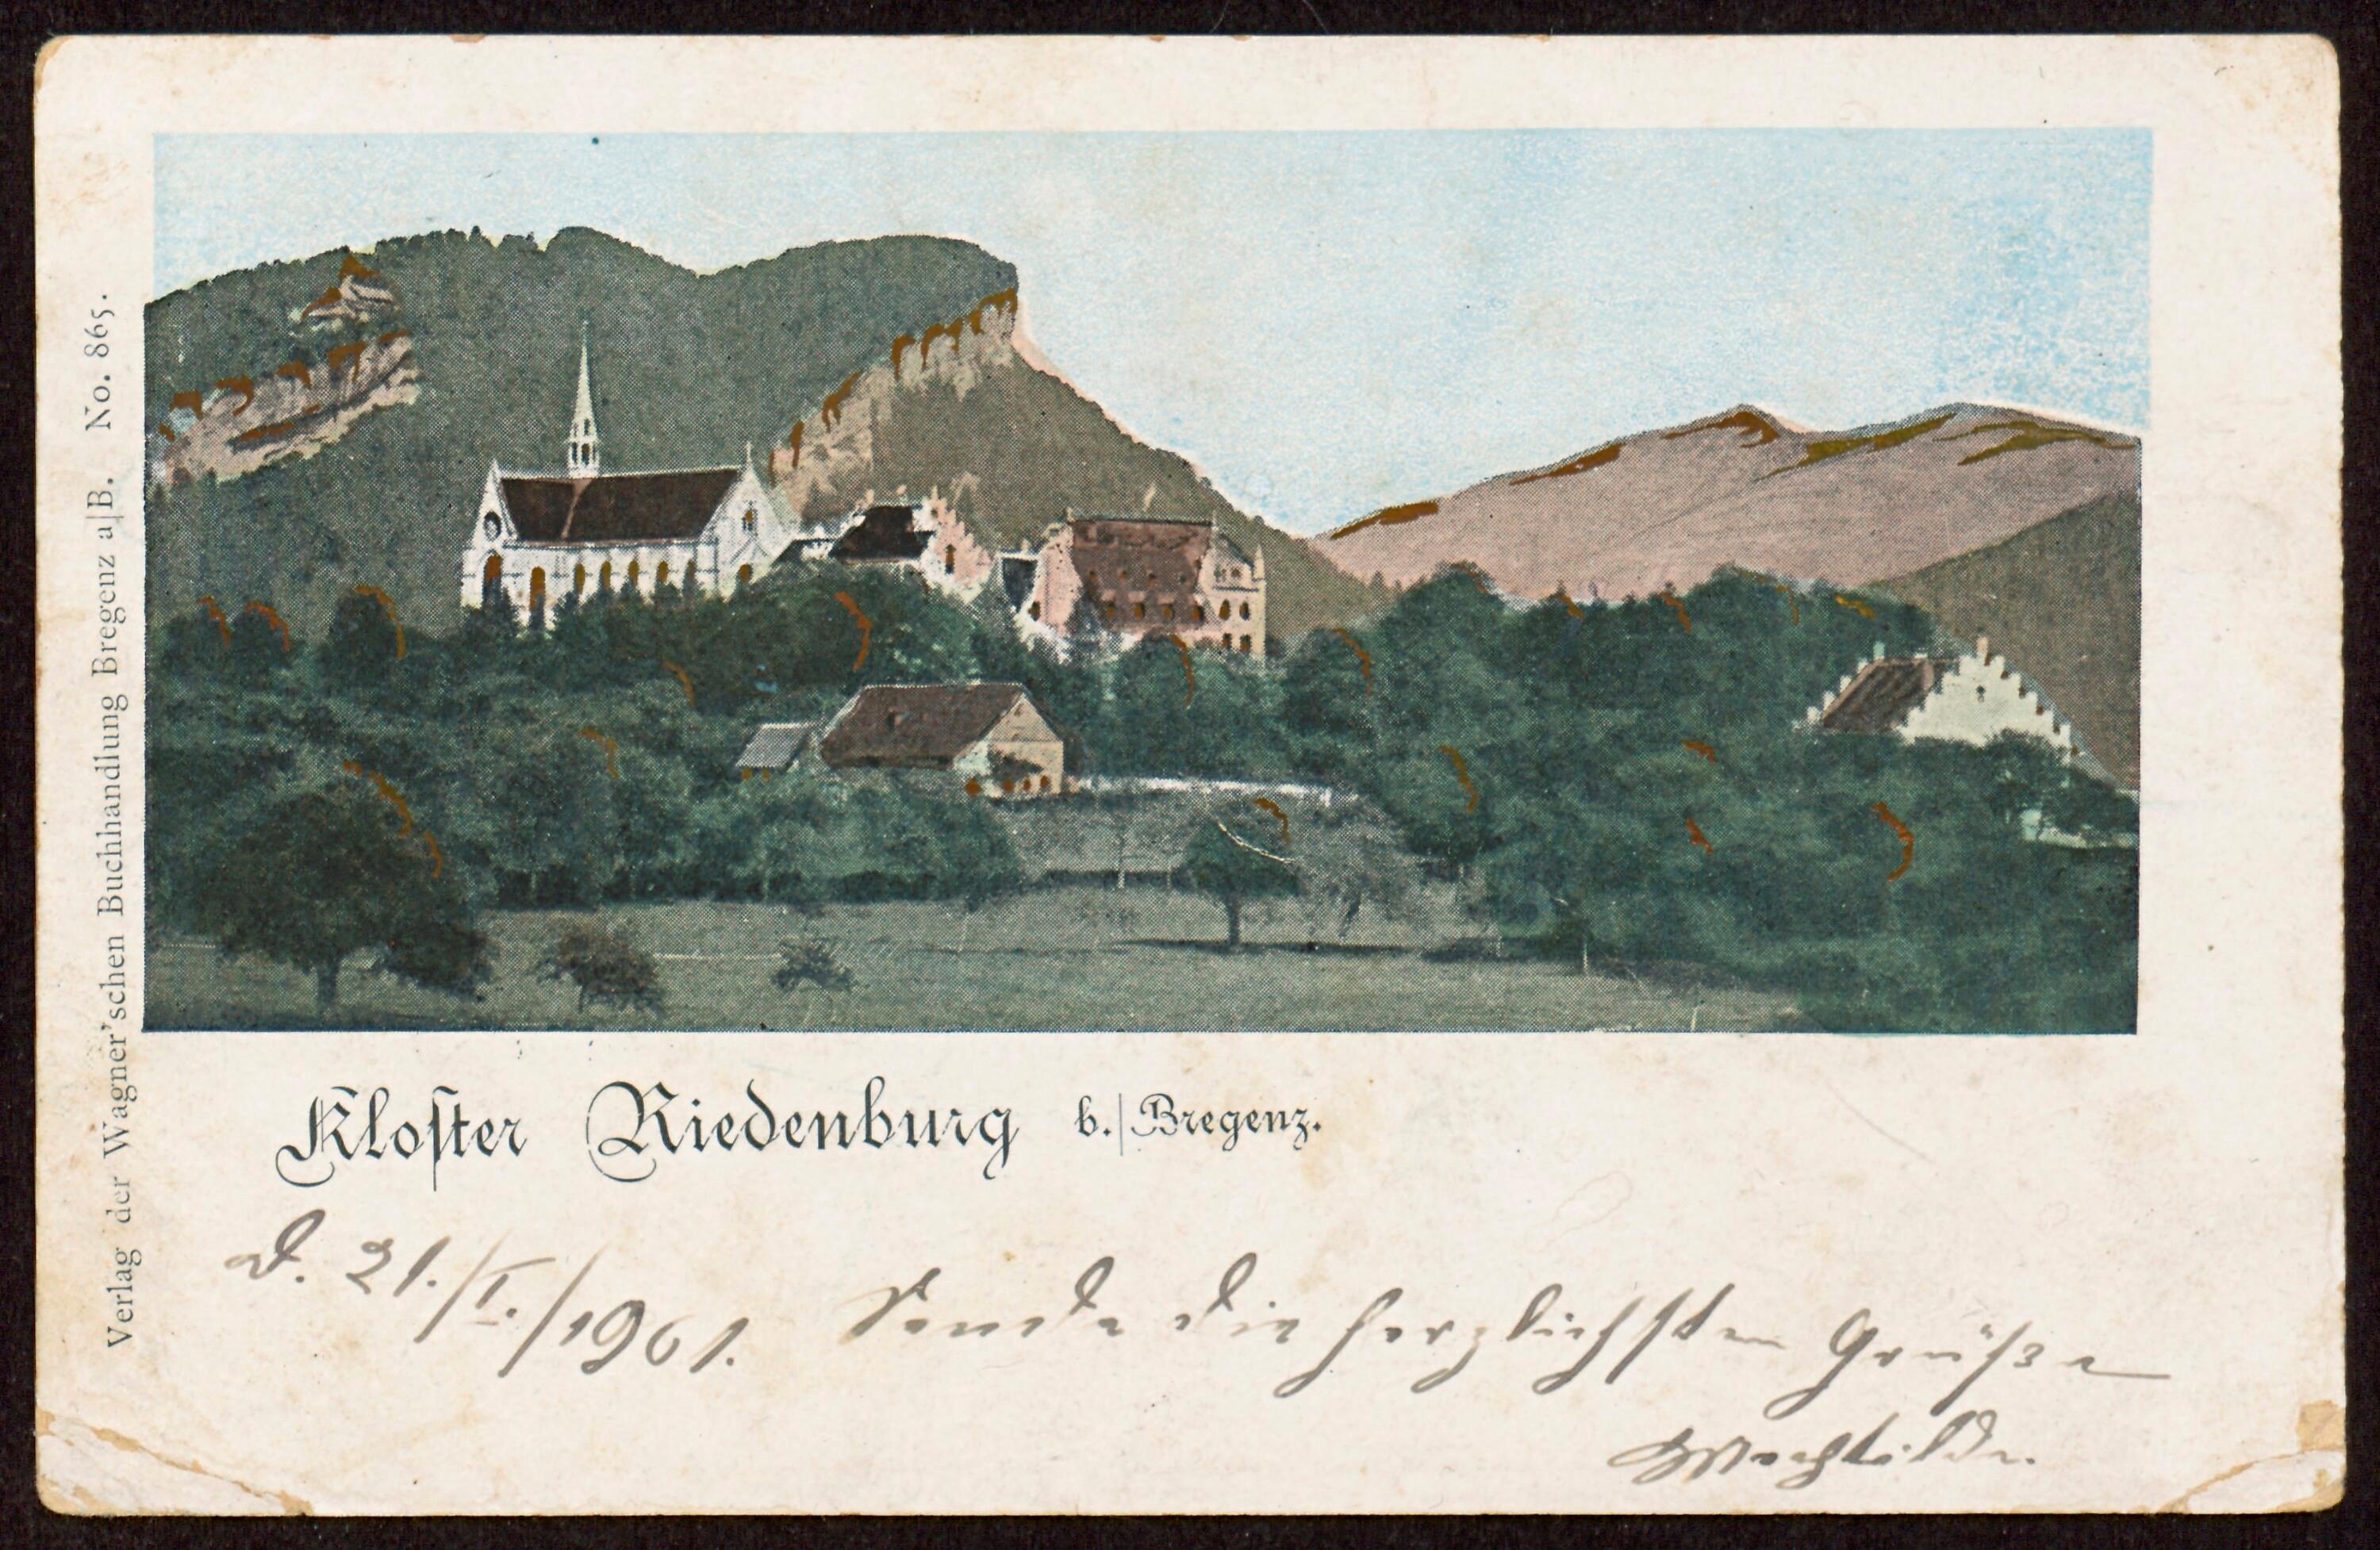 Verlag der Wagner'schen Buchhandlung Bregenz a|B. No. 865.
Kloſter Riedenburg b./Bregenz.
d. 21./I./1901. Sende die herzlichsten Grüße
Mechtilde.